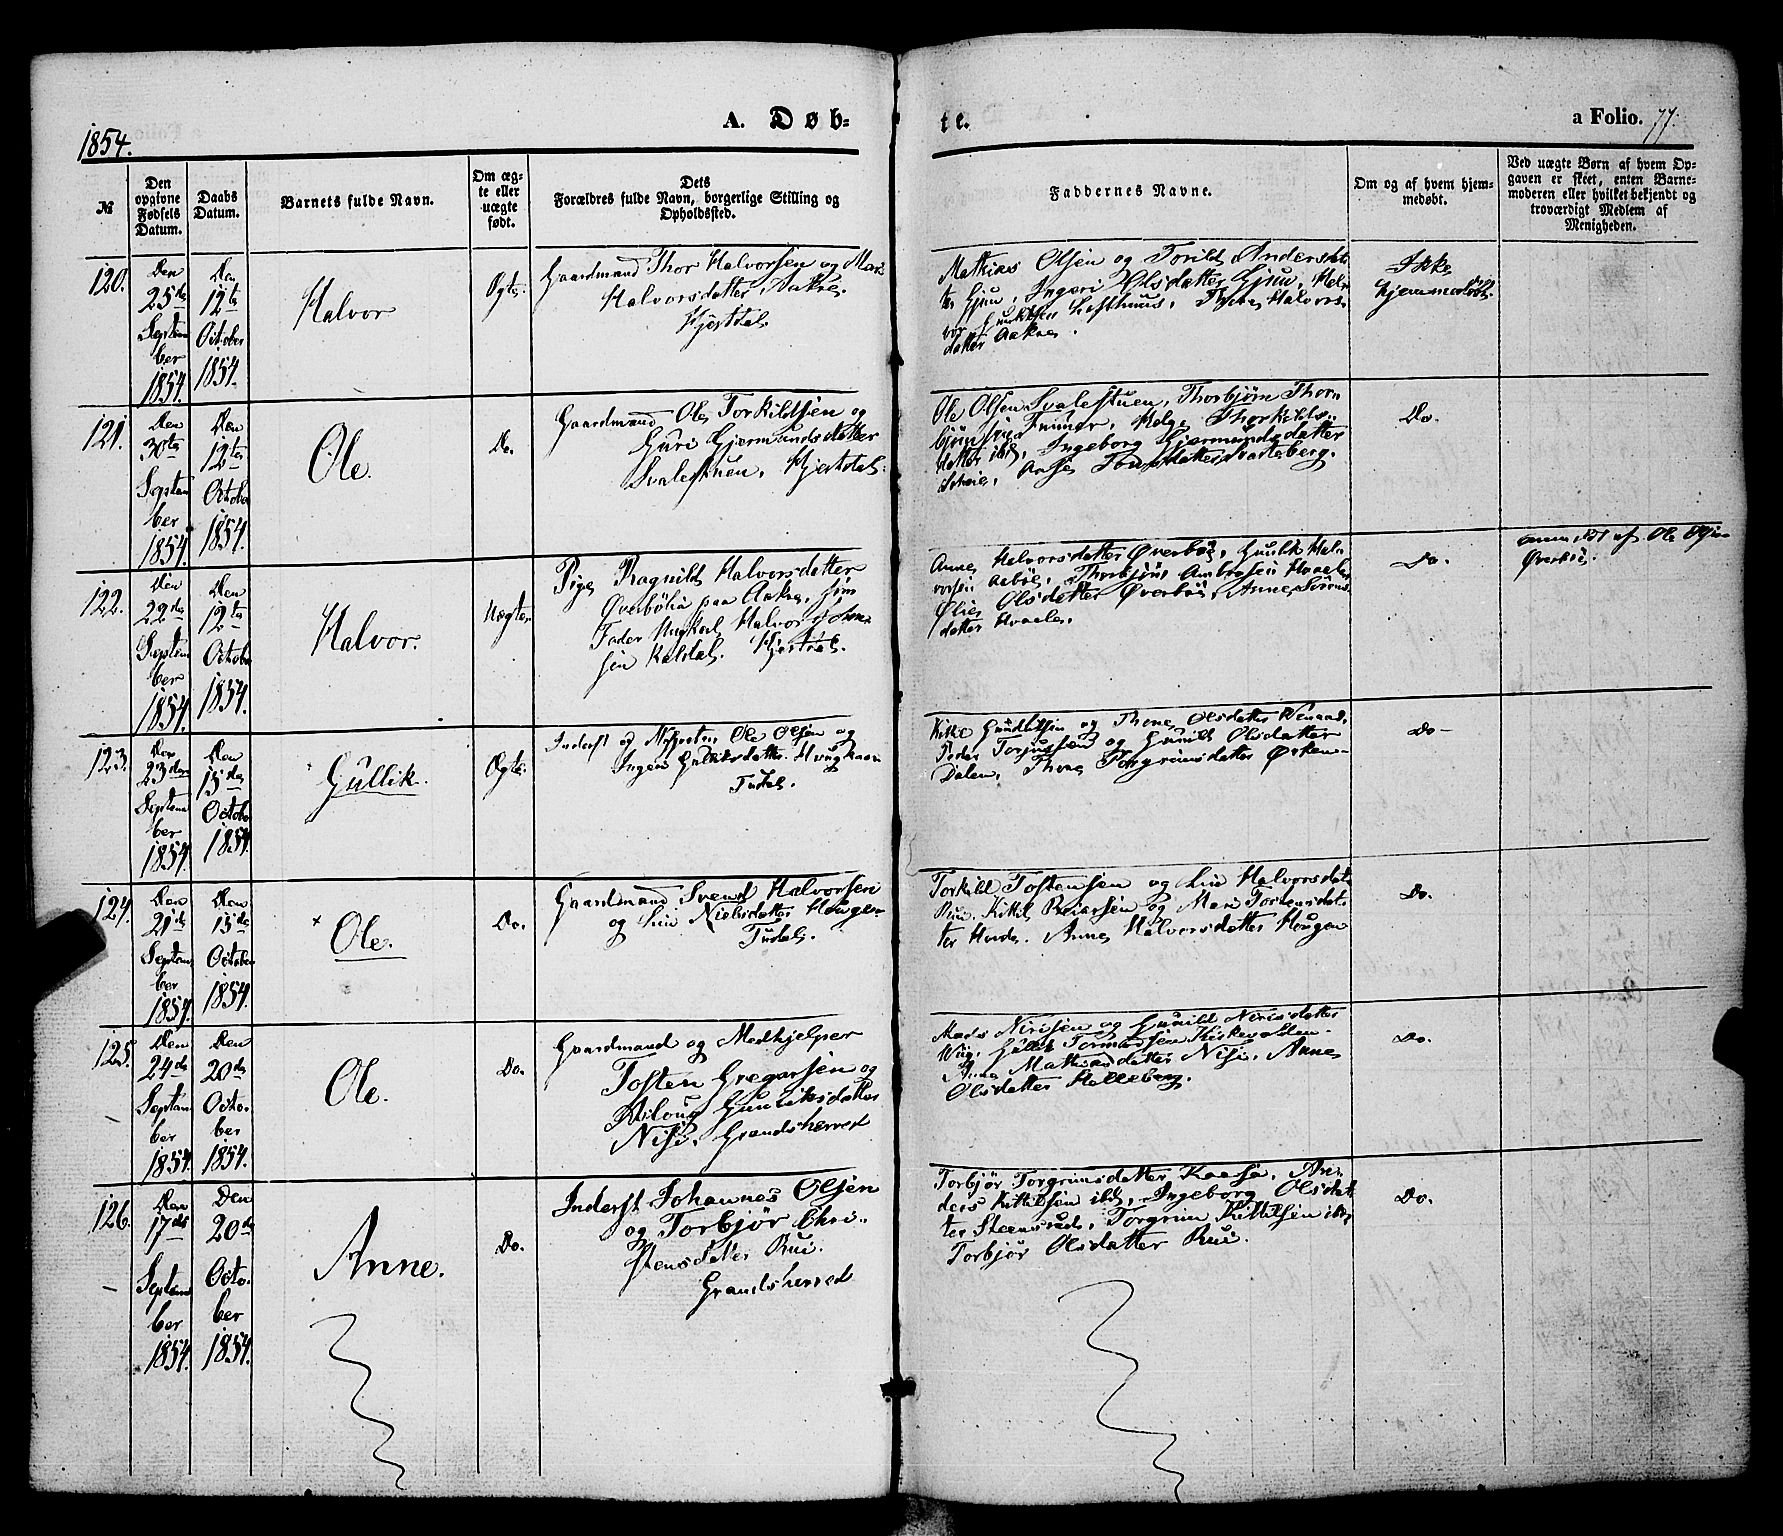 1854.
A. Døb-
te.
a Folio. 77.
№
Den opgivne Fødsels Datum.
Daabs Datum.
Barnets fulde Navn.
Om ægte eller uægte født.
Dets Forældres fulde Navn, borgerlige Stilling og Opholdssted.
Faddernes Navne.
Om og af hvem hjemmedøbt.
Ved uægte Børn af hvem Opgaven er skeet, enten Barnemoderen eller hvilket bekjendt og troværdigt Medlem af Menigheden.
120.
Den
25de
Septem
ber
1854.
Den
12te
October
1854.
Halvor
Ægte
Gaardmand Thor Halvorsen og Mari
Halvorsdatter Aakre.
Hjertdal.
Mathias Olsen og Torild Andersdat
ter Gjuv, Ingeri Olsdatter Gjuv, Hal-
vor Lofthuus, Thone Halvors-
datter Aakre.
Ikke
hjemmedøbt.
121.
Den
30te
Septem
ber
1854.
Den
12te
Octobe
1854.
Ole.
Do.
Gaardmand Ole Torkildsen og
Guri Gjermundsdatter
Svalestuen, Hjertdal.
Ole Olsen Svalestuen, Thorbjørn Thor-
bjørnsen Helge Thorkilds-
datter ibd, Ingeborg Gjermundsdatter
Aasse Svarteberg.
Do.
122.
Den
22de
Septem
ber
1854.
Den
12te
Octobe
1854.
Halvor.
Uægte.
Pige Ragnild Halvorsdatter
Øverbølia paa Aakre, hin
Fader Ungkarl Halvor Johne-
sen Kaldal. Hjertdal.
Anne Halvorsdatter Øverbøe, Gunlik Hal-
vorsen Aabøe, Thorbjørn Hvaale,
Olsdatter Øverbøe, Anne Sørens-
datter Hvaale.
Do.
af Ole
Øverbøe.
123.
Den
23de
Septem
ber
1854.
Den
15de
Octobe
1854.
Gullik.
Ægte.
Inderst og Ole Olsen og
Ingeri Gulliksdatter
Tudal.
og Thone Olsdatter
Peder Torjussen og Gunild Olsdatter
Thone Torgrimsdatter Ørken-
Dalen,
Do-
124.
Den
21de
Septem
ber
1854.
Den
15de
October
1854.
× Ole.
Do.
Gaardmand Svend Halvorsen
og Liv Nielsdatter Hougen
Tudal.
Torkild Tostensen og Liv Halvorsdat
Rue. Kittil Reiarsen og Mari Tostensdat-
ter Anne Halvorsdatter Hougen
Do.
125.
Den
24de
Septem
ber
1854.
Den
20de
Octo.
ber
1854.
Ole.
Do.
Gaardmand og Medhjelper
Tosten Gregarsen og
Aaloug Gunliksdatter
Nisi. Grandsherred
Mads Nirisen og Gunild Nirisdatter
Wiig,
Anne Mathiasdatter Nisi. Anne
Olsdatter Helleberg.
Do.
126.
Den
17de
Septem
ber
1854.
Den
20de
Octo.
ber
1854.
Anne.
Do.
Inderst Johannes Olsen
og Torbjør Chri-
stensdatter Rui.
Grandsherred
Torbjør Torgrimsdatter Kaasa. An-
ders Kittilsen ibd, Ingeborg Olsdat
ter Steensrud, Torgrim Kittilsen ibd,
Torbjør Olsdatter Rui.
Do.